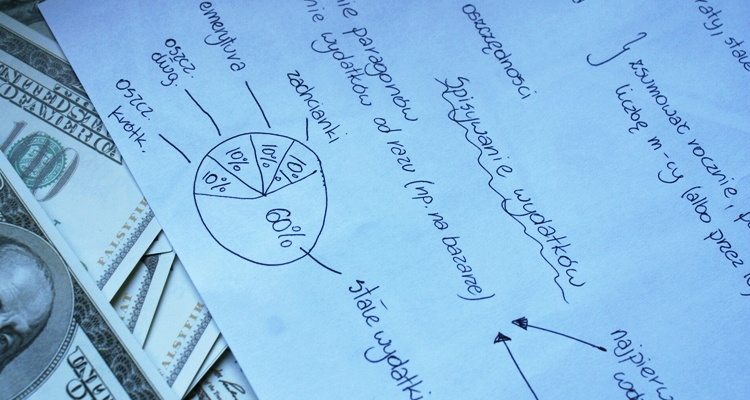 oszcz.
krótk.
oszcz.
dług.
emerytura
zachcianki
10%
10%
10%
10%
60%
stałe wydatki
paragonów
wydatków od razu (np. na bazarze)
oszczędności
Spisywanie wydatków
raty, stałe
} zsumować rocznie,
liczbę m-cy (albo przez
najpierw
UNITED STATES
OF AMERICA
100
UNITED